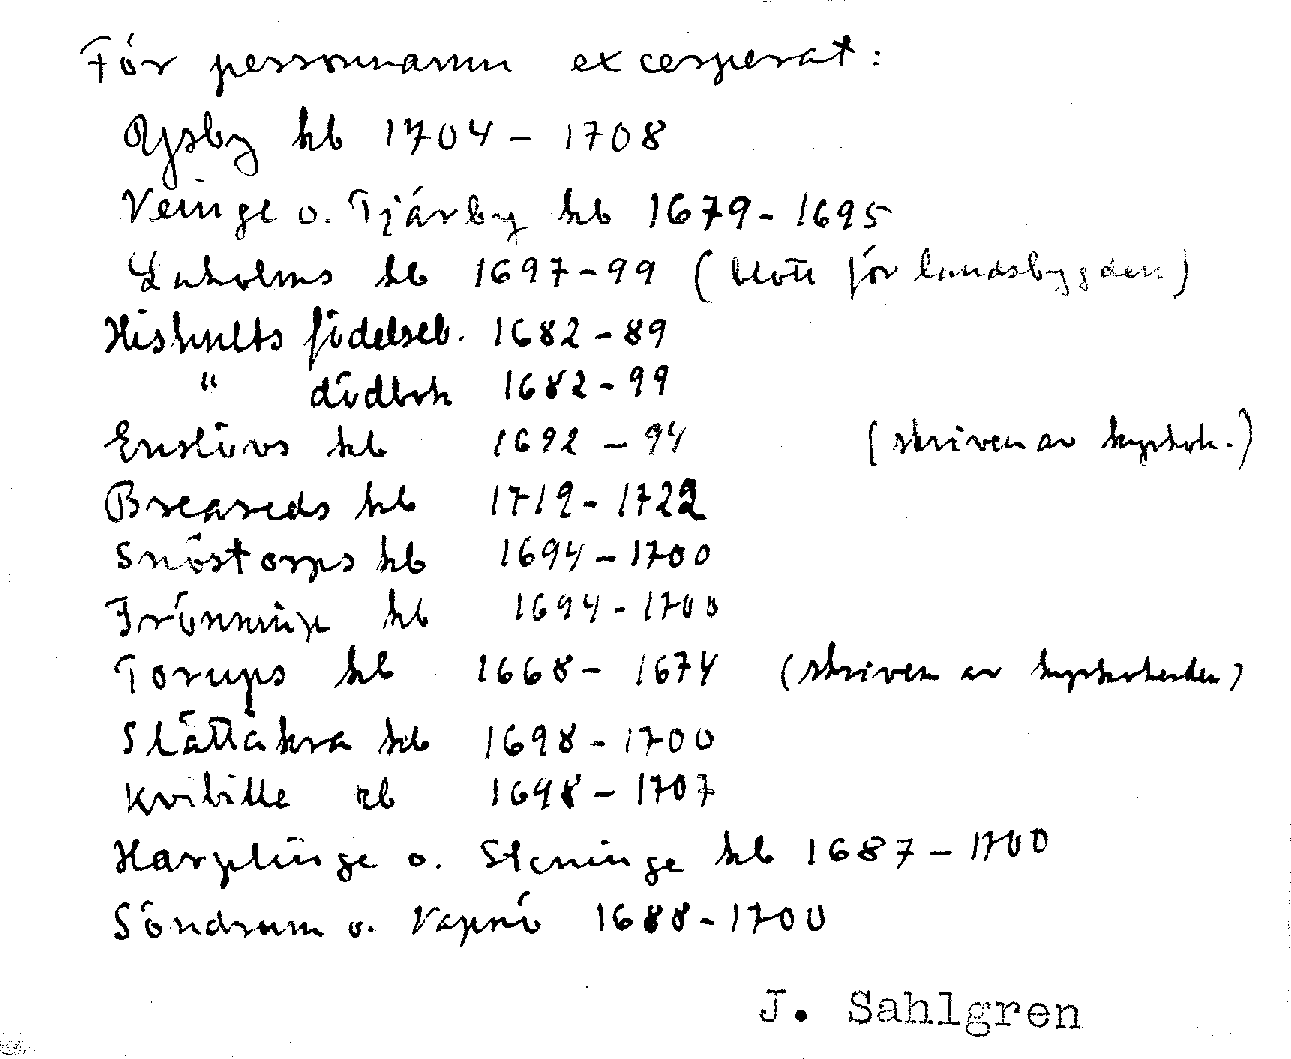 För personnamn excerperat:
Rysby kb 1704 - 1708
Veinge o. Tjärby kb 1679 - 1695
Laholms kb 1697-99 (blott för landsbygden)
Hishults födelseb. 1682-89
" dödbok 1682-99
Enslövs kb 1692 - 94 (skriven av kyrkoh.)
Breareds kb 1719 - 1722
Snöstorps kb 1694 - 1700
Trönninge kb 1694 - 1700
Torups kb 1668 - 1674 (skriven av kyrkoherden)
Slättåkra kb 1698 - 1700
Kvibille kb 1698 - 1707
Harplinge o. Steninge kb 1687 - 1700
Söndrum o. Vapnö 1688-1700
J. Sahlgren